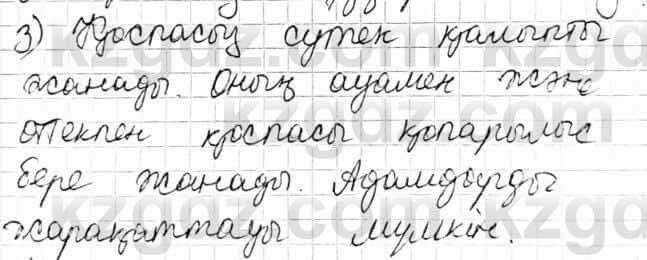 3) Қоспасыз сутек қалыпты
жанады. Оның ауамен және
оттекпен қоспасы қопарылыс
бере жанады. Адамдарды
жарақаттауы мүмкін.